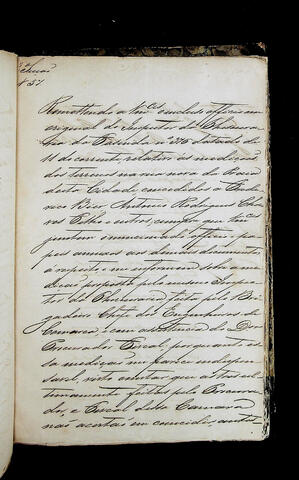 N 57
Remettendo a Vm.ces o incluso officio em
original do Inspector da Thesoura-
ria da Fazenda n 276 datado de
11 do corrente, relativo ás medições
dos terrenos na rua nova da
desta Cidade, concedidos a Frede-
rico Antonio Rodrigues
e outros, cumpre que Vm.ces
juntem o mencionado officio e pa-
peis annexos aos demais documentos
a respeito, e me informem sobre a me-
dição proposta pelo mesmo Inspec-
tor da Thesouraria feita pelo Bri-
gadeiro Chefe dos Engenheiros da
Comarca, e com assistencia do Dor
Procurador Fiscal, porquanto es-
sa medição me parece indispen-
savel, visto constar, que as tres ul-
timamente feitas pelo Procura-
dor, e Fiscal dessa Camara
não acertão em